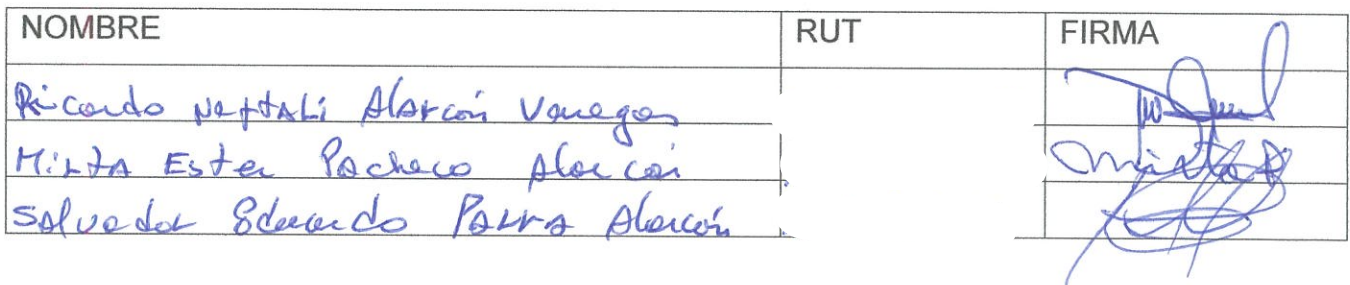 NOMBRE RUT FIRMA
Ricardo Neftalí Alarcón Venegas
Mirta Ester Pacheco Alarcón Mirta
Salvador Eduardo Parra Alarcón